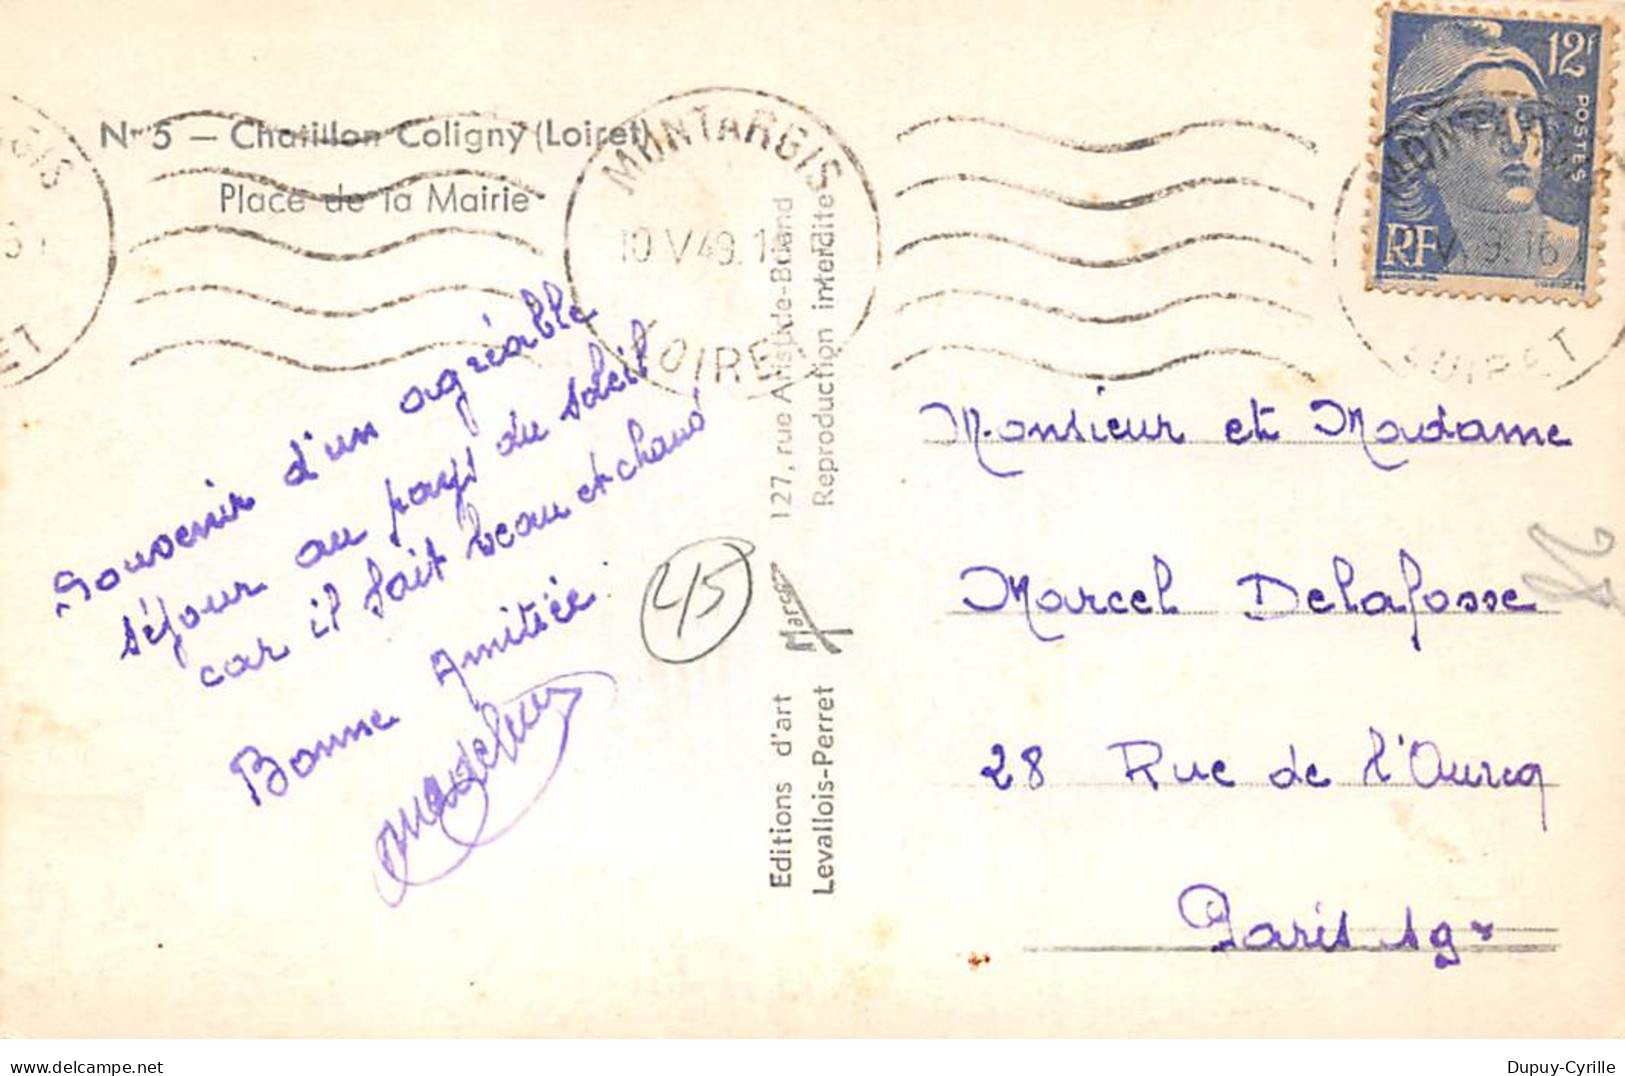 N° 5 — Chatillon Coligny (Loiret)
Place de la Mairie
MONTARGIS
10 V 49. 1
LOIRET
12F
POSTES
RF
Souvenir d'un agréable
séjour au pays du soleil
car il fait beau et chaud
Bonne Amitiée.
Madeleine
45
Editions d'art
Levallois-Perret
Marco
127, rue Aristide-Briand
Reproduction interdite
Monsieur et Madame
Marcel Delafosse
28 Rue de l'Ourcq
Paris 19e
Dupuy-Cyrille